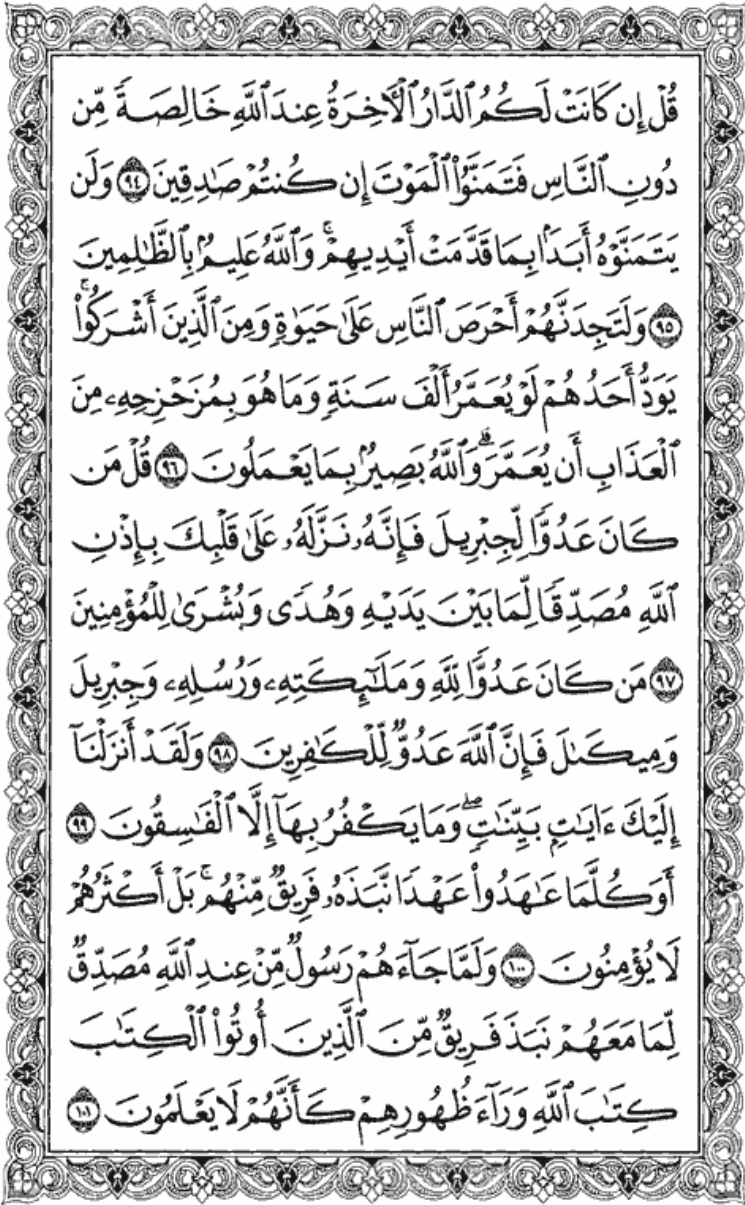 قُلْ إِن كَانَتْ لَكُمُ ٱلدَّارُ ٱلْأَخِرَةُ عِندَ ٱللَّهِ خَالِصَةً مِّن
دُونِ ٱلنَّاسِ فَتَمَنَّوُا۟ ٱلْمَوْتَ إِن كُنتُمْ صَـٰدِقِينَ ٩٤ وَلَن
يَتَمَنَّوْهُ أَبَدَۢا بِمَا قَدَّمَتْ أَيْدِيهِمْ ۗ وَٱللَّهُ عَلِيمُۢ بِٱلظَّـٰلِمِينَ
٩٥ وَلَتَجِدَنَّهُمْ أَحْرَصَ ٱلنَّاسِ عَلَىٰ حَيَوٰةٍ وَمِنَ ٱلَّذِينَ أَشْرَكُوا۟ ۚ
يَوَدُّ أَحَدُهُمْ لَوْ يُعَمَّرُ أَلْفَ سَنَةٍ وَمَا هُوَ بِمُزَحْزِحِهِۦ مِنَ
ٱلْعَذَابِ أَن يُعَمَّرَ ۗ وَٱللَّهُ بَصِيرُۢ بِمَا يَعْمَلُونَ ٩٦ قُلْ مَن
كَانَ عَدُوًّا لِّجِبْرِيلَ فَإِنَّهُۥ نَزَّلَهُۥ عَلَىٰ قَلْبِكَ بِإِذْنِ
ٱللَّهِ مُصَدِّقًا لِّمَا بَيْنَ يَدَيْهِ وَهُدًى وَبُشْرَىٰ لِلْمُؤْمِنِينَ
٩٧ مَن كَانَ عَدُوًّا لِّلَّهِ وَمَلَـٰٓئِكَتِهِۦ وَرُسُلِهِۦ وَجِبْرِيلَ
وَمِيكَىٰلَ فَإِنَّ ٱللَّهَ عَدُوٌّ لِّلْكَـٰفِرِينَ ٩٨ وَلَقَدْ أَنزَلْنَآ
إِلَيْكَ ءَايَـٰتٍۭ بَيِّنَـٰتٍ ۖ وَمَا يَكْفُرُ بِهَآ إِلَّا ٱلْفَـٰسِقُونَ ٩٩
أَوَكُلَّمَا عَـٰهَدُوا۟ عَهْدًا نَّبَذَهُۥ فَرِيقٌ مِّنْهُم ۚ بَلْ أَكْثَرُهُمْ
لَا يُؤْمِنُونَ ١٠٠ وَلَمَّا جَآءَهُمْ رَسُولٌ مِّنْ عِندِ ٱللَّهِ مُصَدِّقٌ
لِّمَا مَعَهُمْ نَبَذَ فَرِيقٌ مِّنَ ٱلَّذِينَ أُوتُوا۟ ٱلْكِتَـٰبَ
كِتَـٰبَ ٱللَّهِ وَرَآءَ ظُهُورِهِمْ كَأَنَّهُمْ لَا يَعْلَمُونَ ١٠١